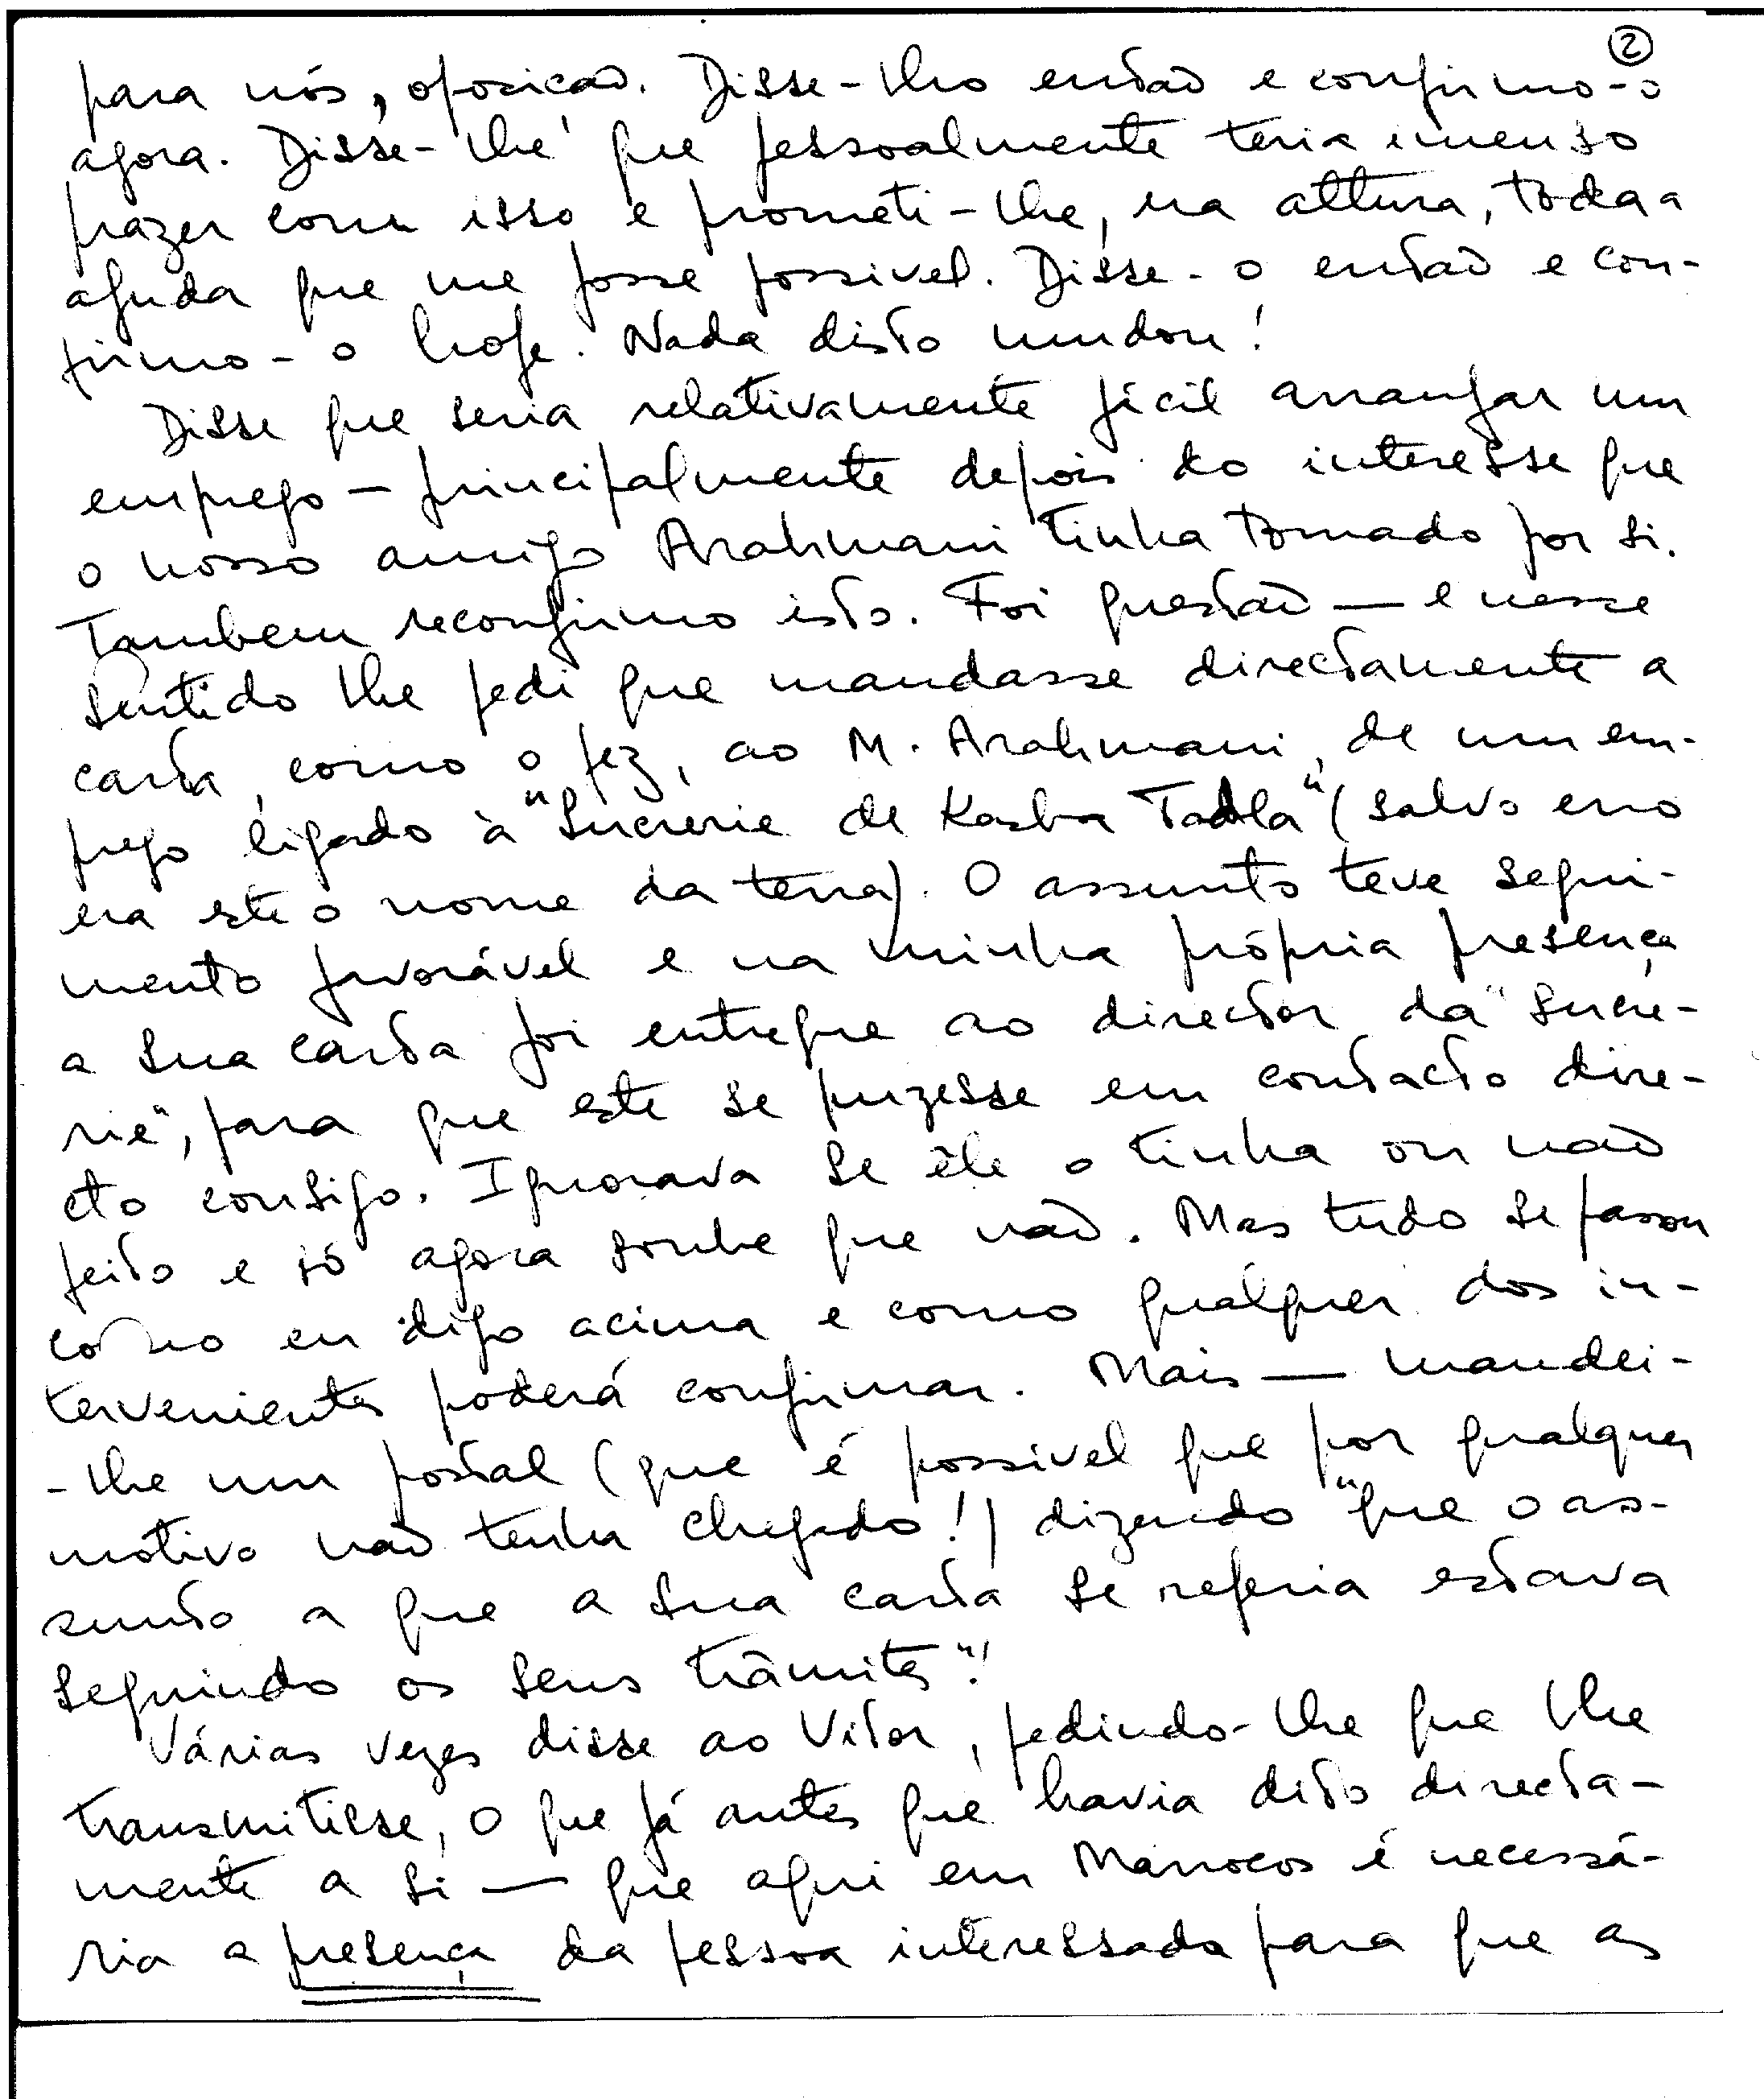 ②
para nós, oposição. Disse-lho então e confirmo-o
agora. Disse-lhe que pessoalmente teria imenso
prazer com isso e prometi-lhe, na altura, toda a
ajuda que me fosse possivel. Disse-o então e con-
firmo-o hoje. Nada disto mudou!
Disse que seria relativamente fácil arranjar um
emprego — principalmente depois do interesse que
o nosso amigo Arahmani tinha tomado por si.
Tambem reconfirmo isto. Foi questão — e nesse
sentido lhe pedi que mandasse directamente a
carta, como o fez, ao M. Arahmani, de um em-
prego ligado à "Sucrerie de Kasba Tadla" (salvo erro
era este o nome da terra). O assunto teve segui-
mento favorável e na minha própria presença
a sua carta foi entregue ao director da "Sucre-
rie", para que este se puzesse em contacto dire-
cto consigo. Ignorava se êle o tinha ou não
feito e só agora soube que não. Mas tudo se passou
como eu digo acima e como qualquer dos in-
tervenientes poderá confirmar. Mais — mandei-
-lhe um postal (que é possivel que por qualquer
motivo não tenha chegado!) dizendo "que o as-
sunto a que a sua carta se referia estava
seguindo os seus trâmites"!
Várias vezes disse ao Vitor, pedindo-lhe que lhe
transmitisse, o que já antes que havia dito directa-
mente a si — que aqui em Marrocos é necessá-
ria a presença da pessoa interessada para que as